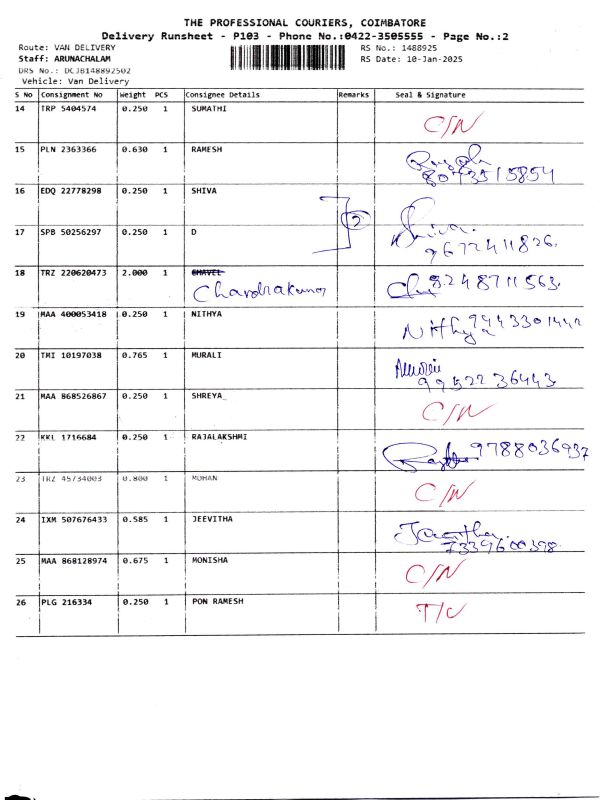 THE PROFESSIONAL COURIERS, COIMBATORE
Delivery Runsheet - P103 - Phone No.:0422-3505555 - Page No.:2
Route: VAN DELIVERY RS No.: 1488925
Staff: ARUNACHALAM RS Date: 10-Jan-2025
DRS No.: DCJB148892502
Vehicle: Van Delivery
S No Consignment No Weight PCS Consignee Details Remarks Seal & Signature
14 TRP 5404574 0.250 1 SUMATHI
C/N
15 PLN 2363366 0.630 1 RAMESH
16 EDQ 22778298 0.250 1 SHIVA
2
Shiva.
17 SPB 50256297 0.250 1 D
9672411826.
18 TRZ 220620473 2.000 1 CHAVEL 8248711563.
Chandrakumar
19 MAA 400053418 0.250 1 NITHYA
Nithya
20 TMI 10197038 0.765 1 MURALI
9952236443.
21 MAA 868526867 0.250 1 SHREYA_
C/N
22 KKL 1716684 0.250 1 RAJALAKSHMI 9788036937
23 TRZ 45734003 0.800 1 MOHAN
C/N
24 IXM 507676433 0.585 1 JEEVITHA
7339600398
25 MAA 868128974 0.675 1 MONISHA
C/N
26 PLG 216334 0.250 1 PON RAMESH
T/C